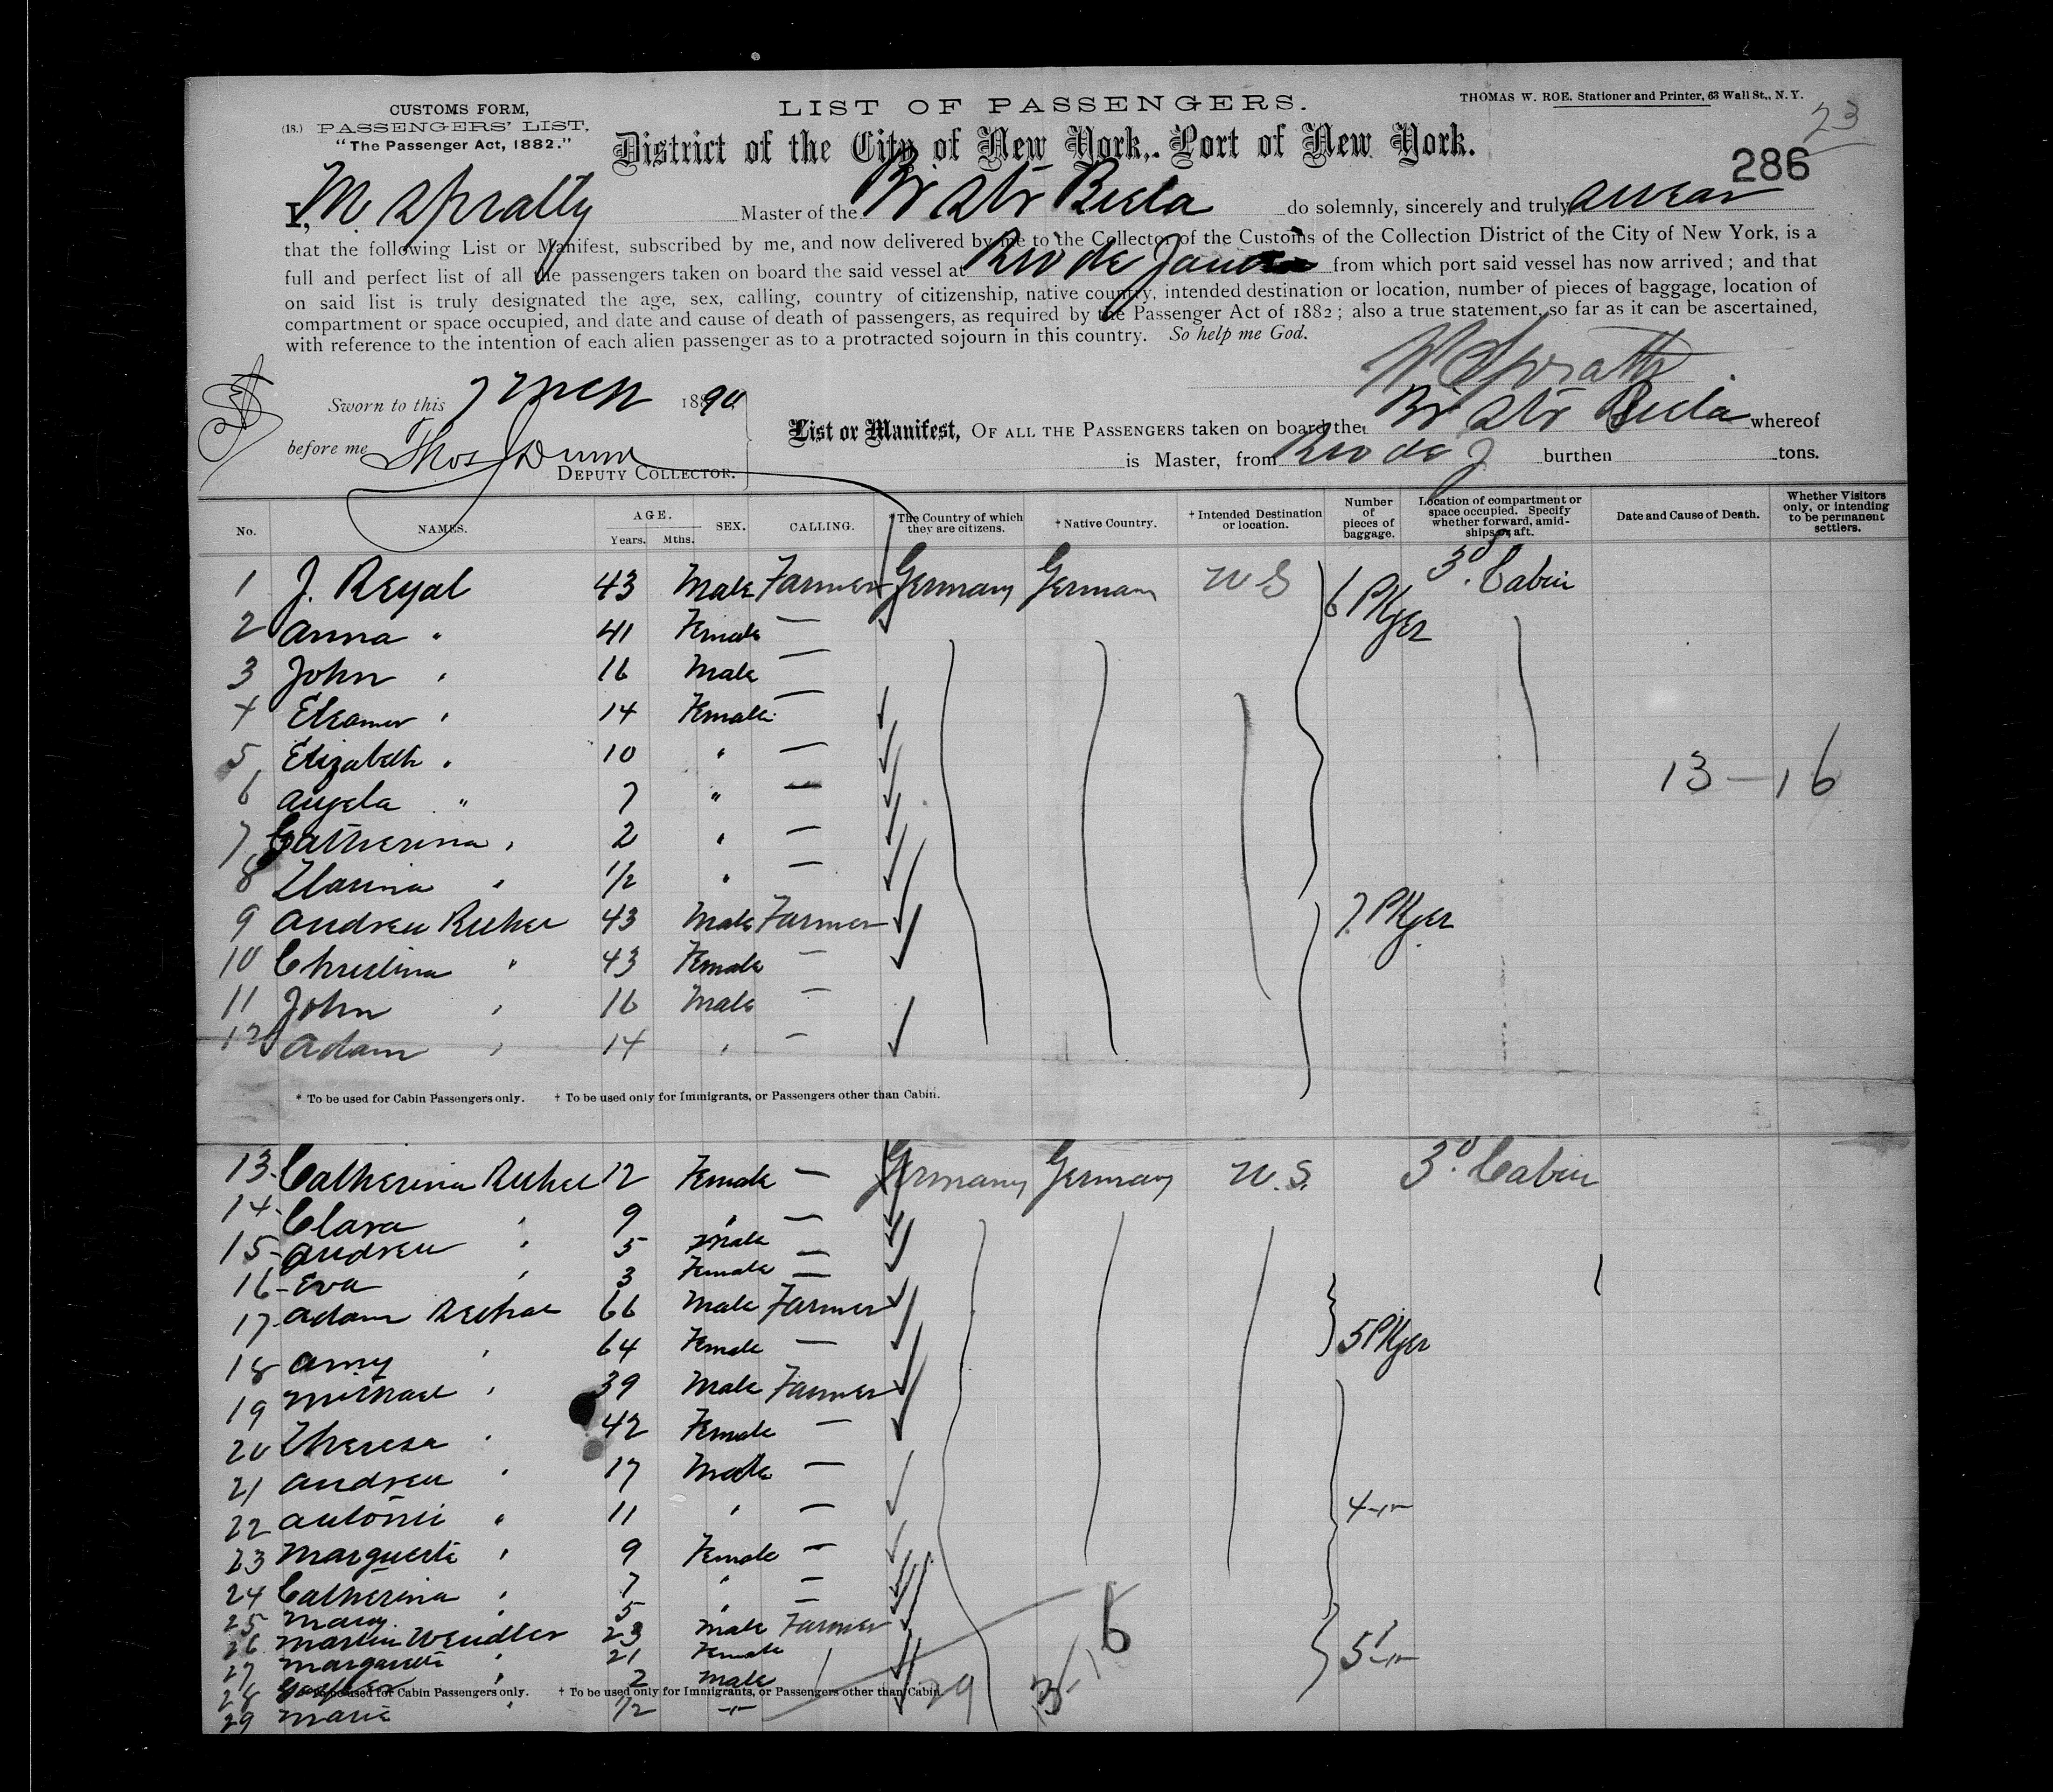 CUSTOMS FORM,
(18.) PASSENGERS' LIST,
"The Passenger Act, 1882."
LIST OF PASSENGERS.
THOMAS W. ROE, Stationer and Printer, 63 Wall St., N.Y.
23
District of the City of New York, Port of New York.
286
I, M. Spratty Master of the Br Str Biela do solemnly, sincerely and truly swear
that the following List or Manifest, subscribed by me, and now delivered by me to the Collector of the Customs of the Collection District of the City of New York, is a
full and perfect list of all the passengers taken on board the said vessel at Rio de from which port said vessel has now arrived; and that
on said list is truly designated the age, sex, calling, country of citizenship, native country, intended destination or location, number of pieces of baggage, location of
compartment or space occupied, and date and cause of death of passengers, as required by the Passenger Act of 1882; also a true statement, so far as it can be ascertained,
with reference to the intention of each alien passenger as to a protracted sojourn in this country. So help me God.
Spratty
Sworn to this 7 Mch 1890
before me Thos Dunn
DEPUTY COLLECTOR.
List or Manifest, OF ALL THE PASSENGERS taken on board the Br Str Biela whereof
is Master, from Rio de J burthen tons.
No. NAMES. AGE. Years. Mths. SEX. CALLING. *The Country of which they are citizens. †Native Country. †Intended Destination or location. Number of pieces of baggage. Location of compartment or space occupied. Specify whether forward, amidships or aft. Date and Cause of Death. Whether Visitors only, or intending to be permanent settlers.
1 J. Reyal 43 Male Farmer Germany Germany U S 6 Pkges 3d. Cabin
2 Anna " 41 Female —
3 John " 16 Male —
4 Eleanor " 14 Female —
5 Elizabeth " 10 " —
6 Angela " 7 " — 13 — 16
7 Catherina " 2 " —
8 " 1/2 " —
9 Andreu 43 Male Farmer 7. Pkges
10 Christina " 43 Female —
11 John " 16 Male —
12 Adam " 14 " —
* To be used for Cabin Passengers only. † To be used only for Immigrants, or Passengers other than Cabin.
13 Catherina 12 Female — Germany Germany U.S. 3d. Cabin
14 Clara " 9 " —
15 Andreu " 5 Male —
16 Eva " 3 Female —
17 Adam 66 Male Farmer
18 Amy " 64 Female — 5 Pkges
19 Michael " 39 Male Farmer
20 Theresa " 42 Female —
21 Andreu " 17 Male —
22 Antoni " 11 " — 4 -"-
23 Marguerite " 9 Female —
24 Catherina " 7 " —
25 Mary " 5 " —
26 Martin Wendler 23 Male Farmer
27 Margaretta " 21 Female 5 -"-
28 " 2 Male
* To be used for Cabin Passengers only. † To be used only for Immigrants, or Passengers other than Cabin.
29 Marie " 1/2 -"-
29 13 - 16